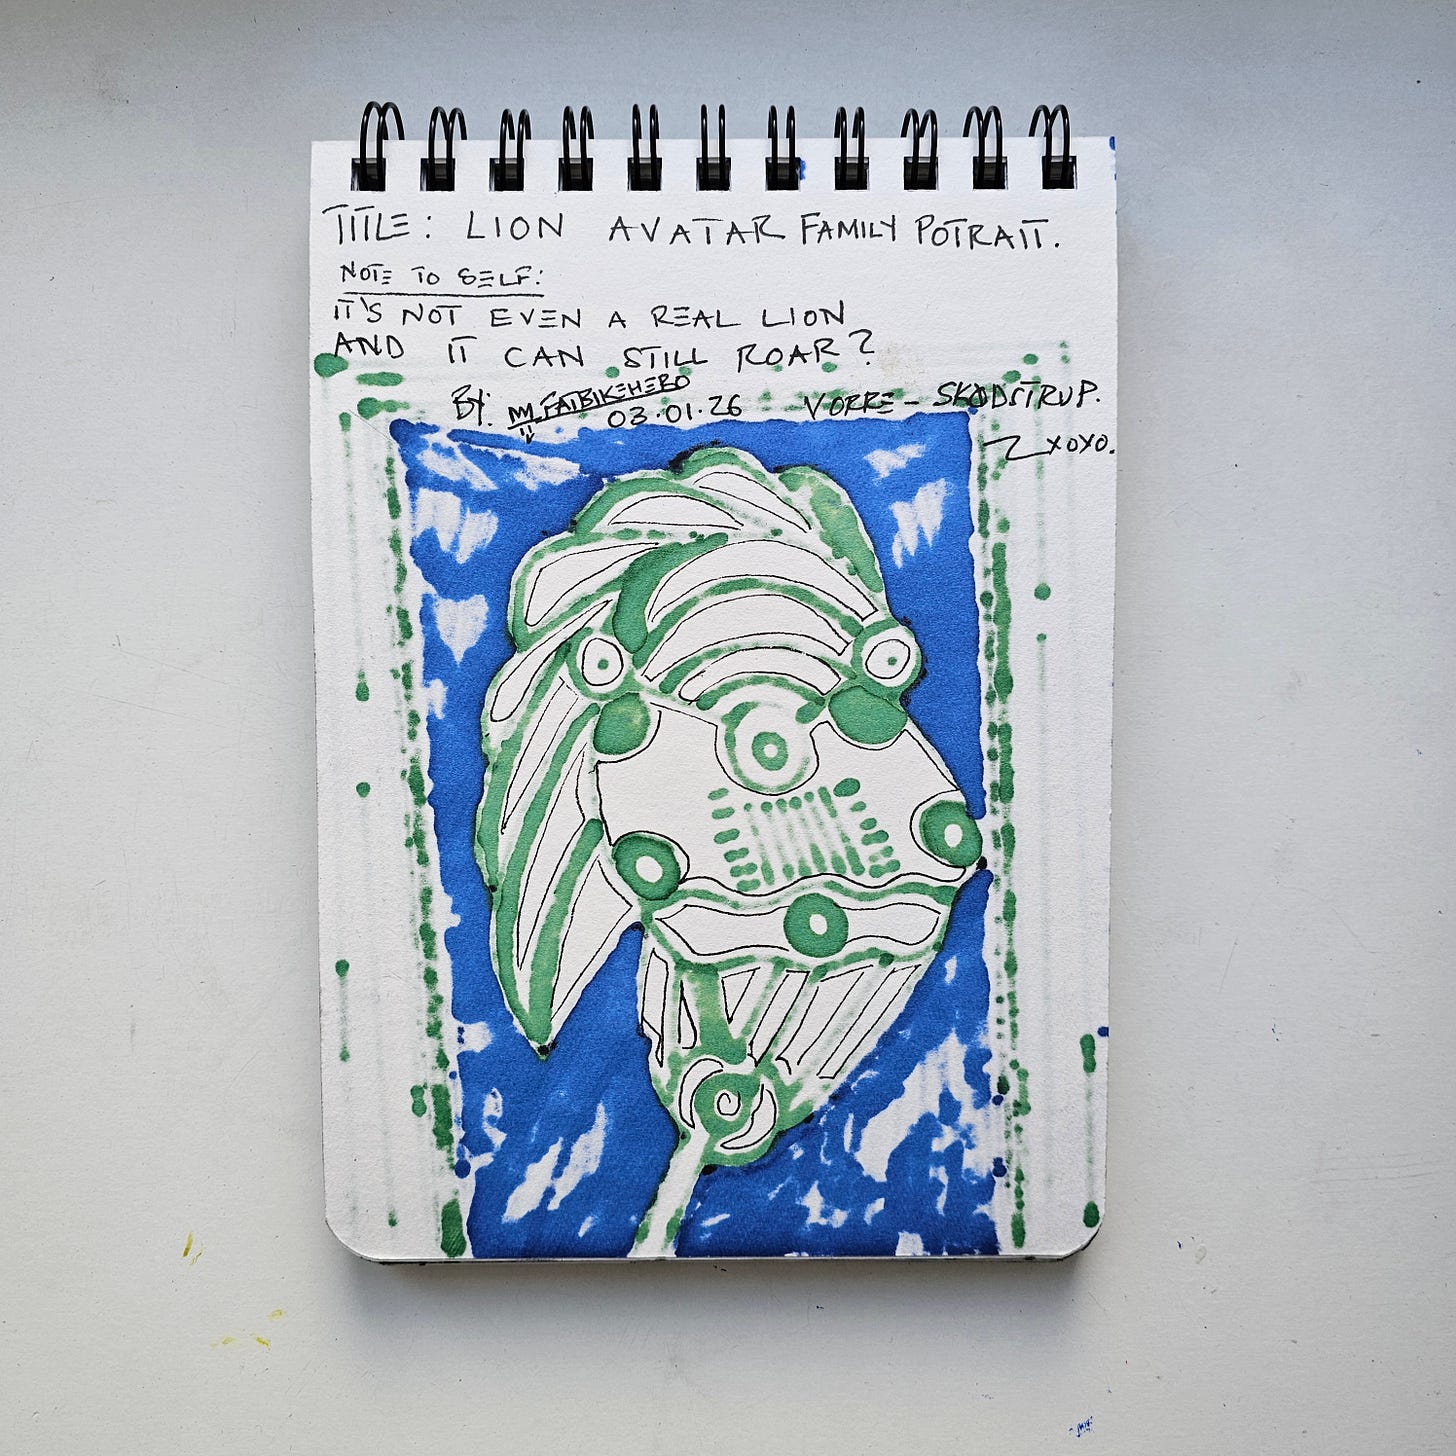 TITLE: LION AVATAR FAMILY POTRAIT.
NOTE TO SELF:
IT'S NOT EVEN A REAL LION
AND IT CAN STILL ROAR?
BY: FATBIKEHERO 03.01.26 VORRE - SKØDSTRUP.
XOXO.